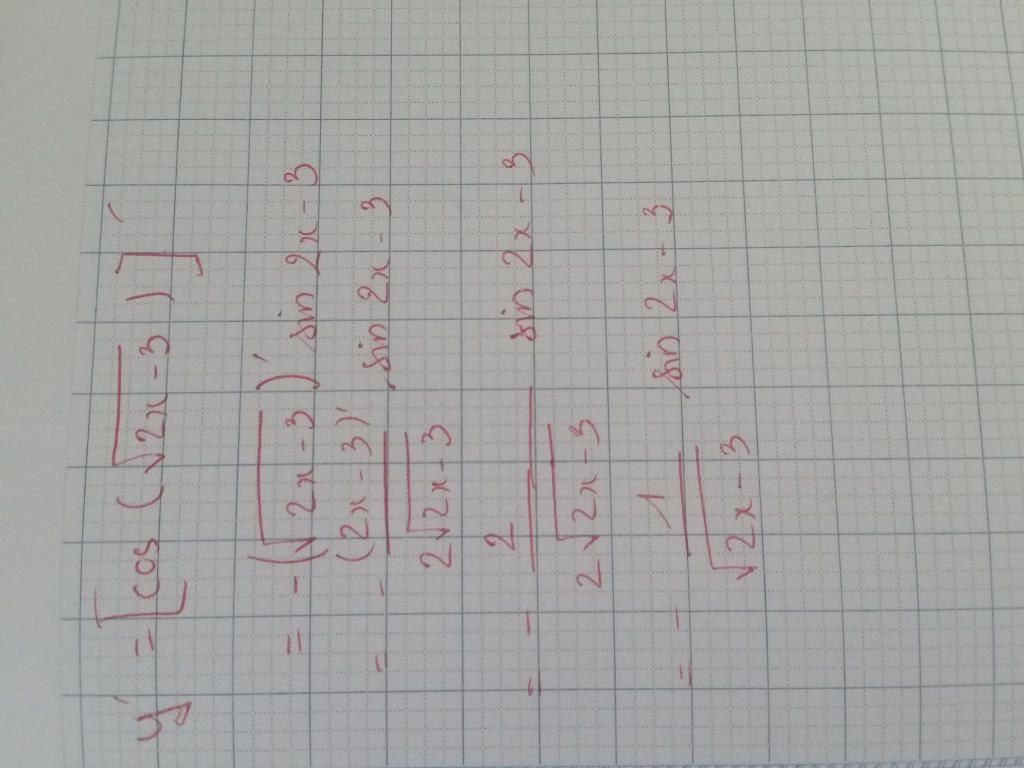 y' = [cos (√2x-3)]'
= -(√2x-3)' sin 2x-3
= - (2x-3)'/2√2x-3 sin 2x-3
= - 2/2√2x-3 sin 2x-3
= - 1/√2x-3 sin 2x-3